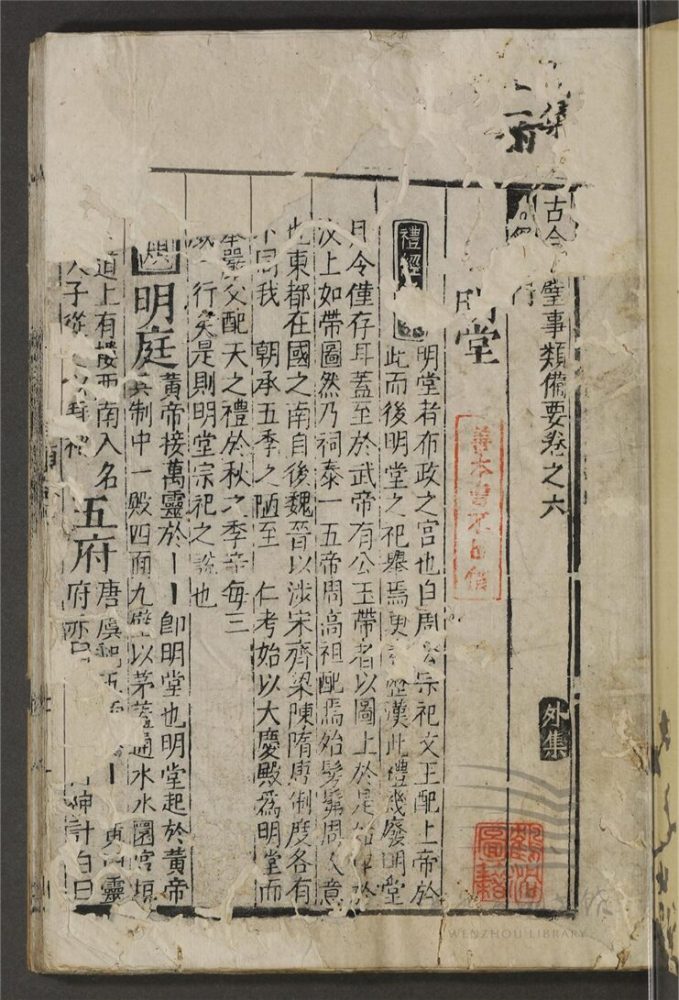 古今 璧事類備要卷之六 外集
明堂
禮經 明堂者布政之宮也自周公宗祀文王配上帝於
此而後明堂之祀舉焉更 歷漢此禮幾廢明堂
月令僅存耳蓋至於武帝有公玉帶者以圖上於是
汶上如帶圖然乃祠泰一五帝周高祖配焉始髣髴周人意
也東都在國之南自後魏晉以涉宋齊梁陳隋唐制度各有
不同我 朝承五季之陋至 仁考始以大慶殿為明堂而
嚴父配天之禮於秋之季辛每三
歲一行矣是則明堂宗祀之說也
明庭 黃帝接萬靈於丨丨即明堂也明堂起於黃帝
其制中一殿四面九壁以茅蓋通水水圜宮垣
道上有樓西南入名 五府 唐虞 五府 丨
天子從 府 神計 白曰
善本書不出借
圖籍
WENZHOU LIBRARY